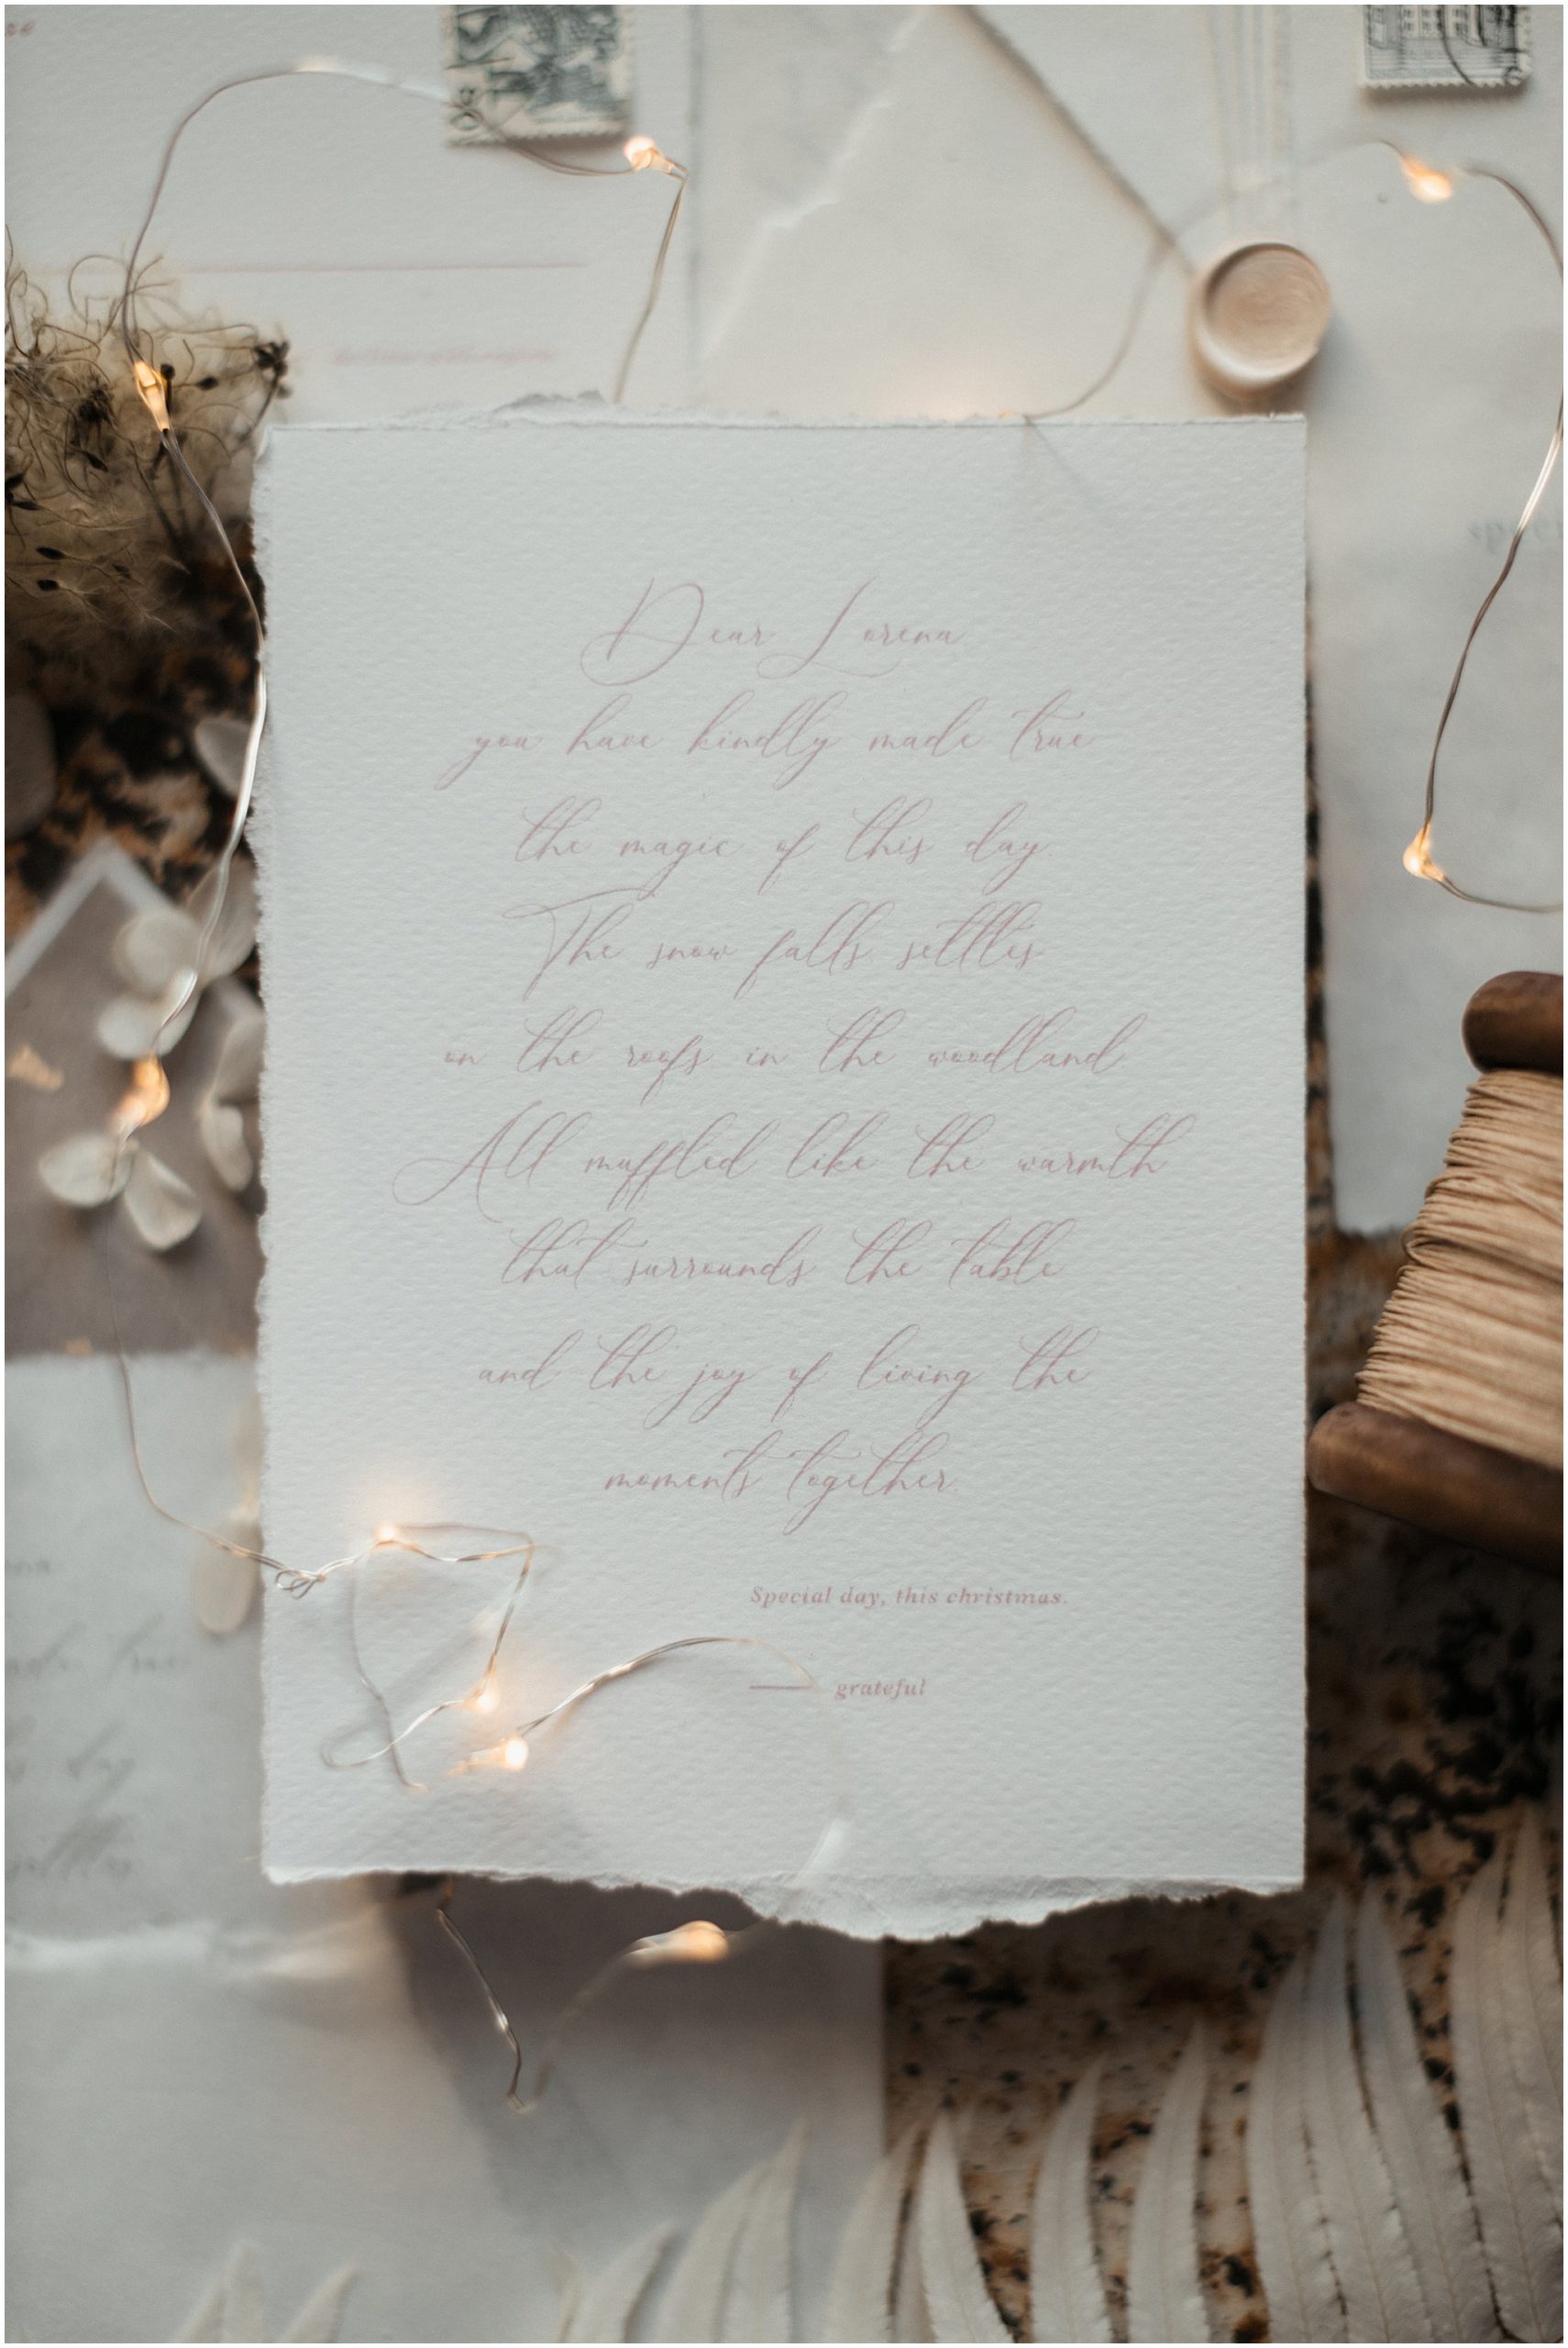 Dear Lorena
you have kindly made true
the magic of this day.
The snow falls settles
on the roofs in the woodland
All muffled like the warmth
that surrounds the table
and the joy of living the
moments together.
Special day, this christmas.
grateful